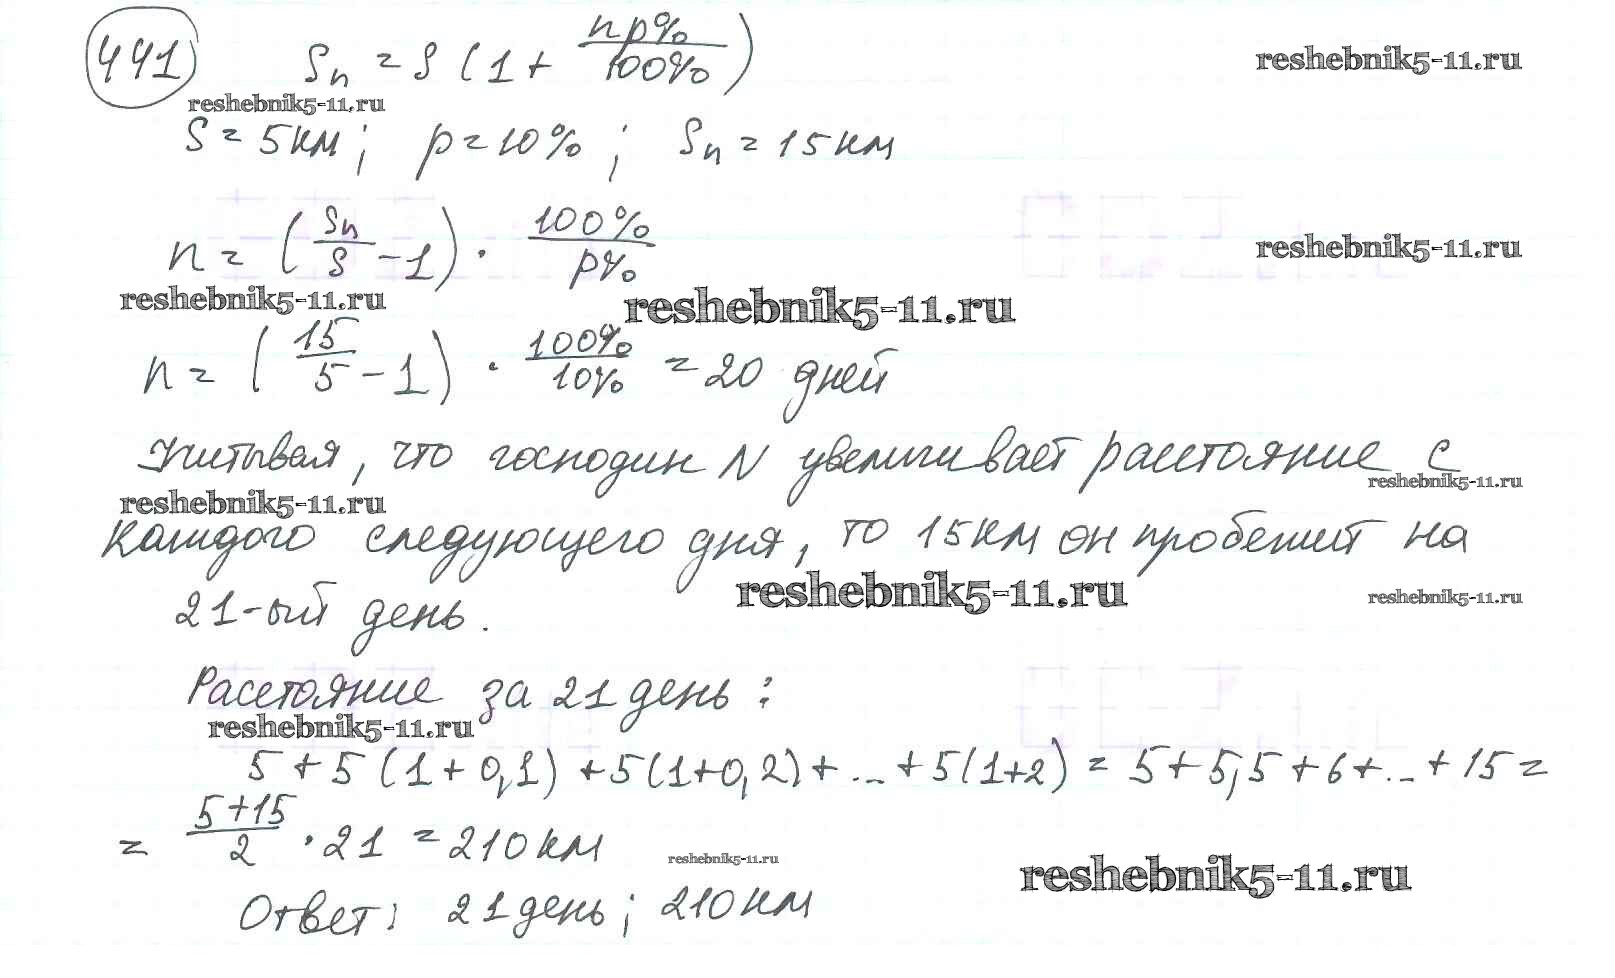 441 Sn = S (1 + np%/100%) reshebnik5-11.ru
reshebnik5-11.ru
S = 5км; p = 10%; Sn = 15км
n = (Sn/S - 1) · 100%/p% reshebnik5-11.ru
reshebnik5-11.ru reshebnik5-11.ru
n = (15/5 - 1) · 100%/10% = 20 дней
Учитывая, что господин N увеличивает расстояние с
reshebnik5-11.ru reshebnik5-11.ru
каждого следующего дня, то 15км он пробежит на
reshebnik5-11.ru reshebnik5-11.ru
21-ый день.
Расстояние за 21 день:
reshebnik5-11.ru
5 + 5 (1 + 0,1) + 5(1+0,2) + ... + 5(1+2) = 5 + 5,5 + 6 + ... + 15 =
= 5+15/2 · 21 = 210км
reshebnik5-11.ru reshebnik5-11.ru
Ответ: 21 день; 210км